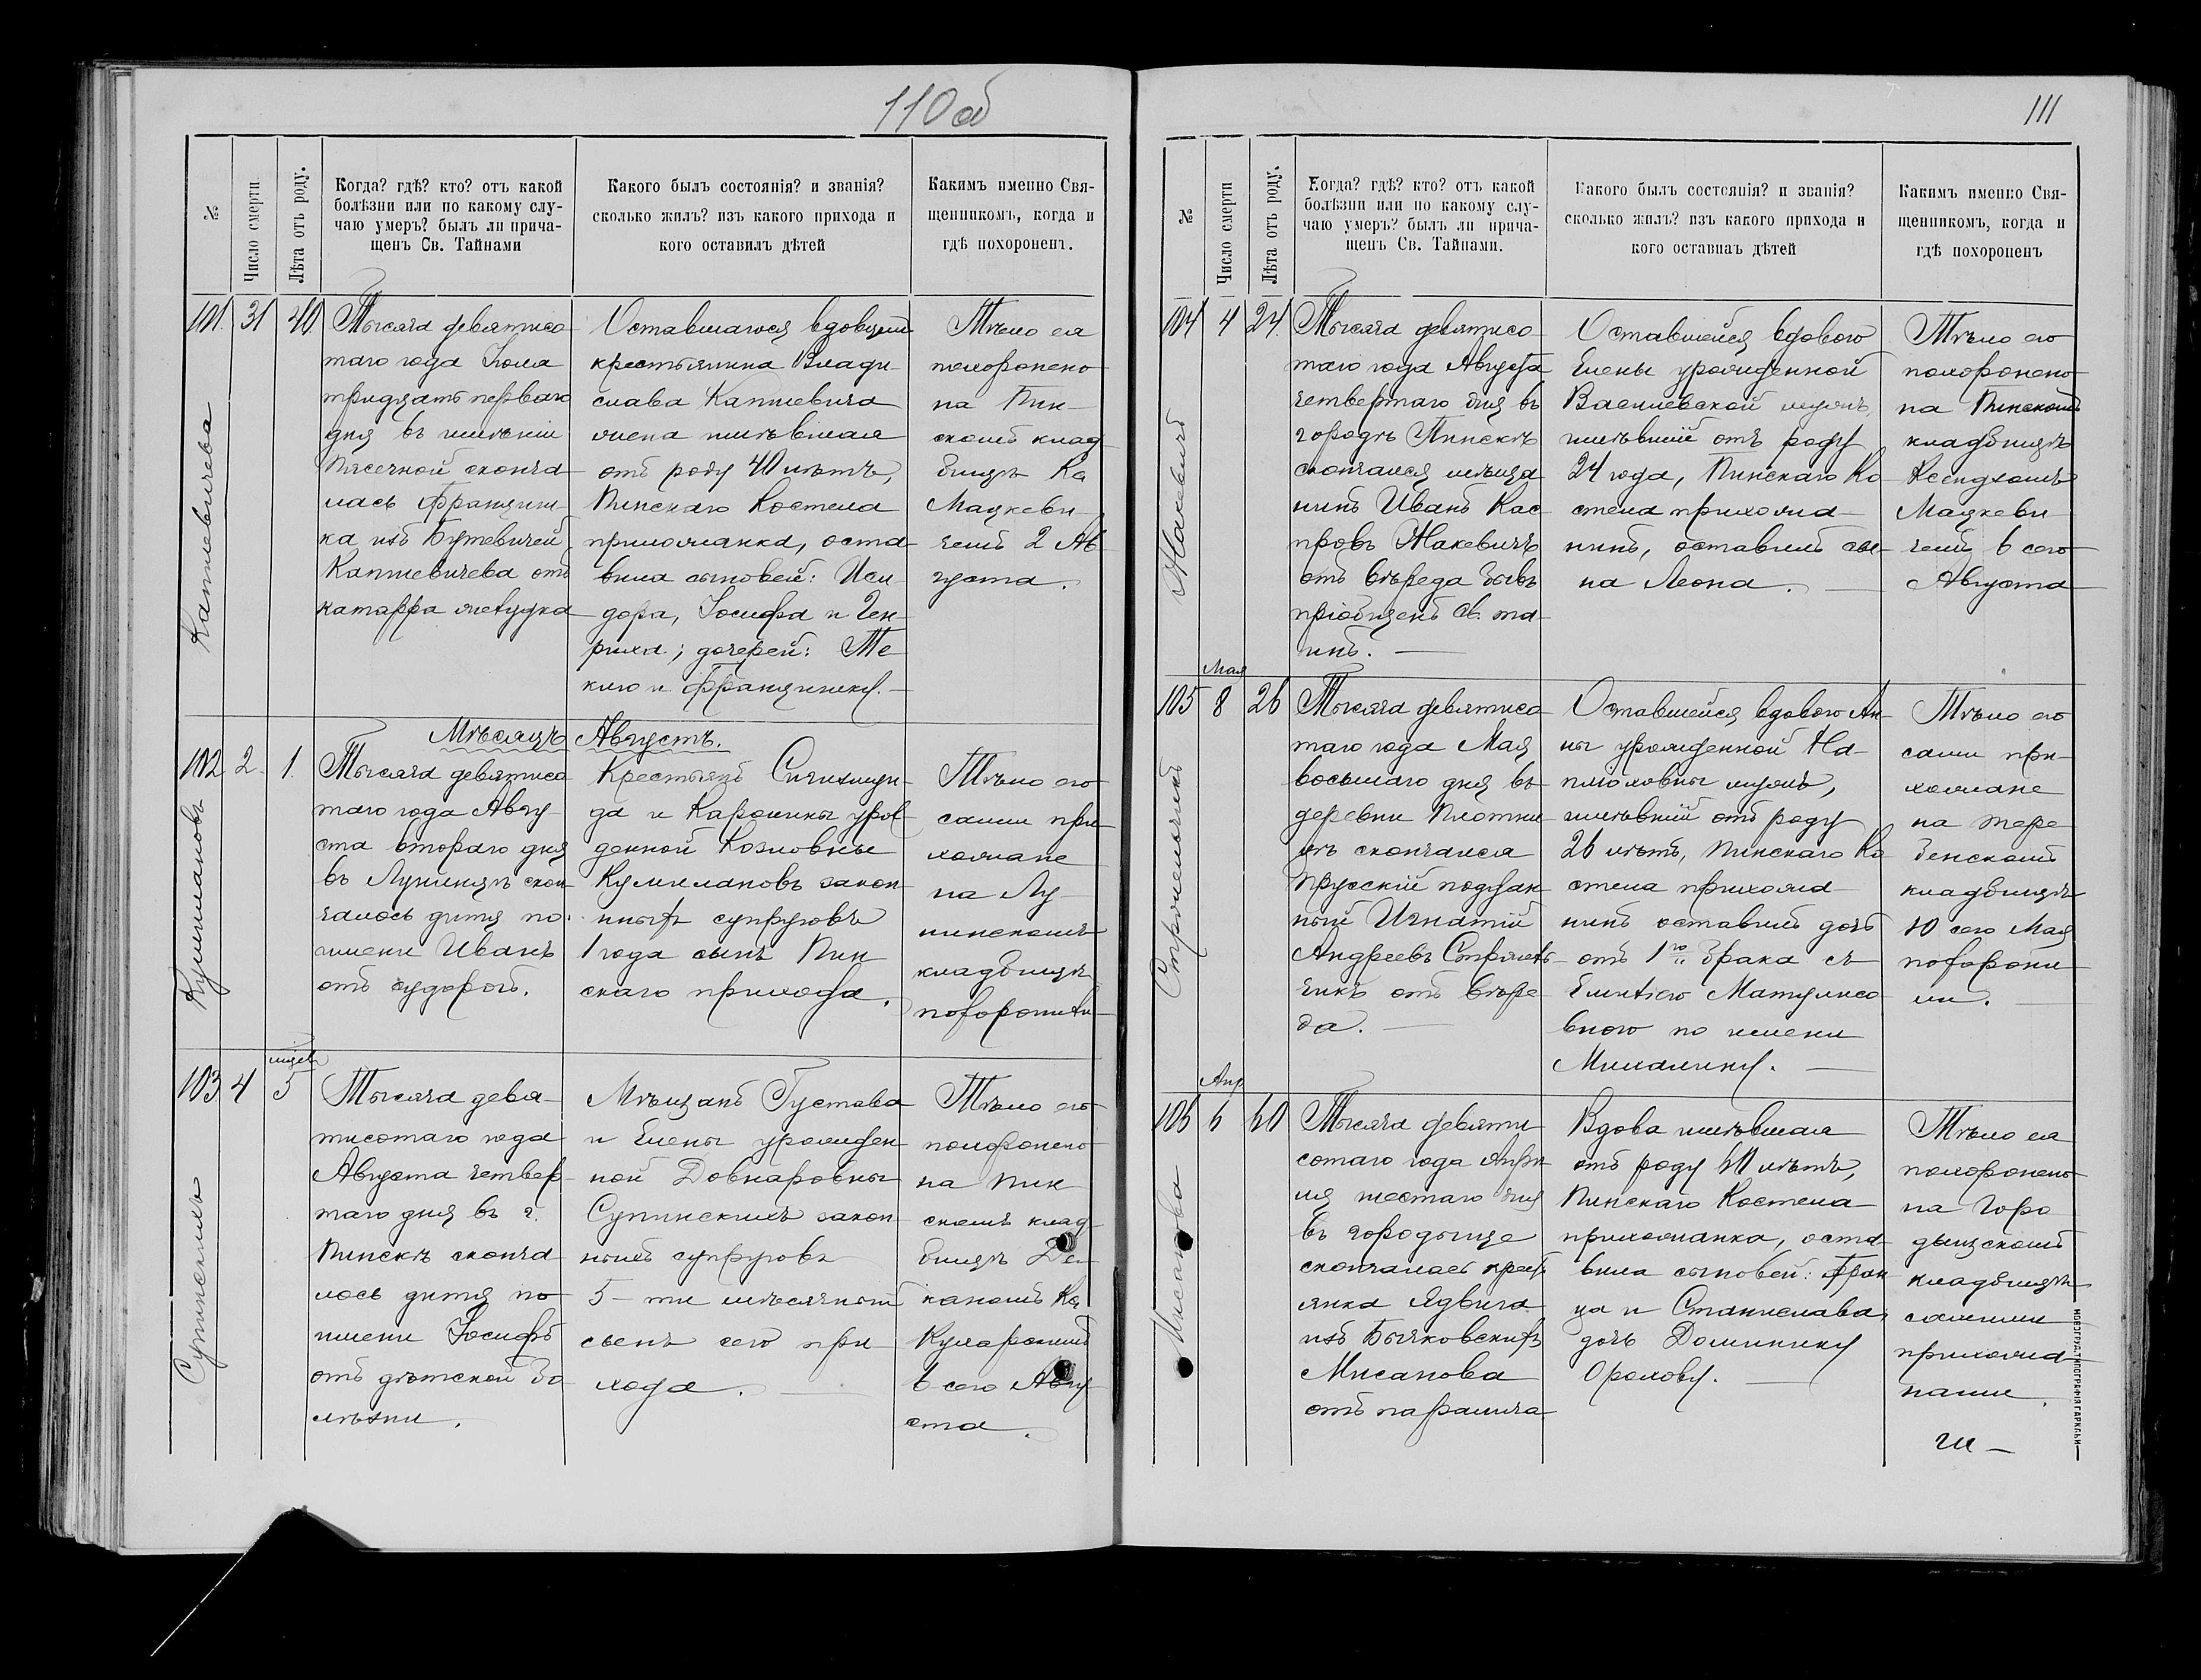 110 об
№
Число смерти
Лѣта отъ роду.
Когда? гдѣ? кто? отъ какой
болѣзни или по какому слу-
чаю умеръ? былъ ли прича-
щенъ Св. Тайнами
Какого былъ состоянія? и званія?
сколько жилъ? изъ какого прихода и
кого оставилъ дѣтей
Какимъ именно Свя-
щенникомъ, когда и
гдѣ похороненъ.
101. 31 40.
Каплевичева
Тысяча девятисо
таго года Іюля
тридцать перваго
дня въ имѣніи
Пясечной сконча
лась Францишка
ка изъ Бутевичей
Каплевичева отъ
катарра желудка
Оставшагося вдовцемъ
крестьянина Влади-
слава Каплевича
жена имѣвшая
отъ роду 40 лѣтъ,
Пинскаго Костела
прихожанка, оста
вила сыновей: Иси
дора, Іосифа и Ген-
риха; дочерей: Те
клю и Францишку.
Тѣло ея
похоронено
на Пин-
скомъ клад
бищѣ Кс
Мацкеви
чемъ 2 Ав
густа.
Мѣсяцъ Августъ.
102. 2. 1.
Тысяча девятисо
таго года Авгу-
ста втораго дня
въ Лунинцѣ скон
чалось дитя по
имени Иванъ
отъ судорогъ.
Крестьянъ Сигизмун-
да и Каролины урож
денной Козловны
закон
ныхъ супруговъ
1 года сынъ Пин
скаго прихода.
Тѣло его
сами при
хожане
на Лу
нинскомъ
кладбищѣ
похоронили
103 4 5
мѣсяц
Супинскихъ
Тысяча девя-
тисотаго года
Августа четвер
таго дня въ г.
Пинскѣ сконча
лось дитя по
имени Іосифъ
отъ дѣтской бо
лѣзни.
Мѣщанъ Густава
и Елены урожден
ной Довнаровны
Супинскихъ закон
ныхъ супруговъ
5-ти мѣсячный
сынъ сего при
хода.
Тѣло его
похоронено
на Пин
скомъ клад
бищѣ Де
каномъ Кс
6 сего Авгу
ста.
111
№
Число смерти
Лѣта отъ роду.
Когда? гдѣ? кто? отъ какой
болѣзни или по какому слу-
чаю умеръ? былъ ли прича-
щенъ Св. Тайнами.
Какого былъ состоянія? и званія?
сколько жилъ? изъ какого прихода и
кого оставилъ дѣтей
Какимъ именно Свя-
щенникомъ, когда и
гдѣ похороненъ
104 4 24.
Жакевичъ
Тысяча девятисо
таго года Августа
четвертаго дня въ
городѣ Пинскѣ
скончался мѣща
нинъ Иванъ Кас
провъ Жакевичъ
отъ вереда бывъ
пріобщенъ св. та
инъ.
Оставшейся вдовою
Елены урожденной
Василевской мужъ,
имѣвшій отъ роду
24 года, Пинскаго Ко
стела прихожа
нинъ, оставилъ сы-
на Леона.
Тѣло его
похоронено
на Пинскомъ
кладбищѣ
Ксендзомъ
Мацкеви
чемъ 6 сего
Августа
Мая
105 8 26
Тысяча девятисо
таго года Мая
восьмаго дня въ
деревни Плотни
цѣ скончался
Прусскій поддан
ный Игнатій
Андреевъ
отъ вере
да.
Оставшейся вдовою Ан
ны урожденной На-
мужъ,
имѣвшій отъ роду
26 лѣтъ, Пинскаго Ко
стела прихожа
нинъ оставилъ дочь
отъ 1го брака съ
вною по имени
Михалину.
Тѣло его
сами при-
хожане
на Тере
бенскомъ
кладбищѣ
10 сего Мая
похорони
ли.
Апр.
106 6 60
Мисанова
Тысяча девяти
сотаго года Апрѣ
ля шестаго дня
въ городыще
скончалась крест
янка Ядвига
изъ Бычковскихъ
Мисанова
отъ паралича
Вдова имѣвшая
отъ роду 60 лѣтъ,
Пинскаго Костела
прихожанка, оста
вила сыновей: Фран
ца и Станислава,
дочь Доминику
Орохову.
Тѣло ея
похоронено
на Горо
дыщскомъ
кладбищѣ
самими
прихожа
нами.
НОВОГРУД. ТИПОГРАФІЯ ГАРКАВИ